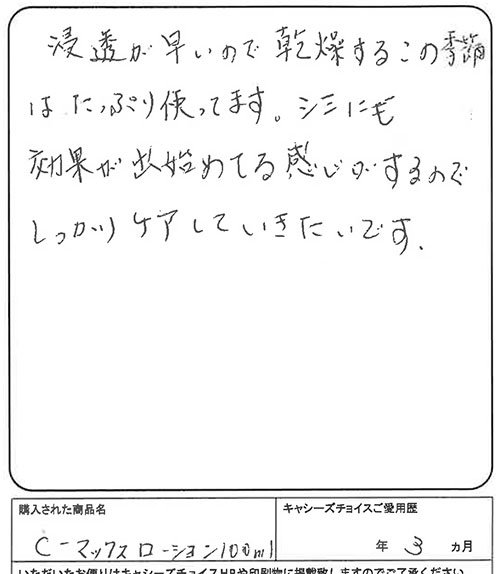 浸透が早いので乾燥するこの季節
はたっぷり使ってます。シミにも
効果が出始めてる感じがするので
しっかりケアしていきたいです.
購入された商品名
キャシーズチョイスご愛用歴
C-マックスローション100ml
年 3 ヵ月
いただいたお便りはキャシーズチョイスHPや印刷物に掲載致しますのでご了承ください